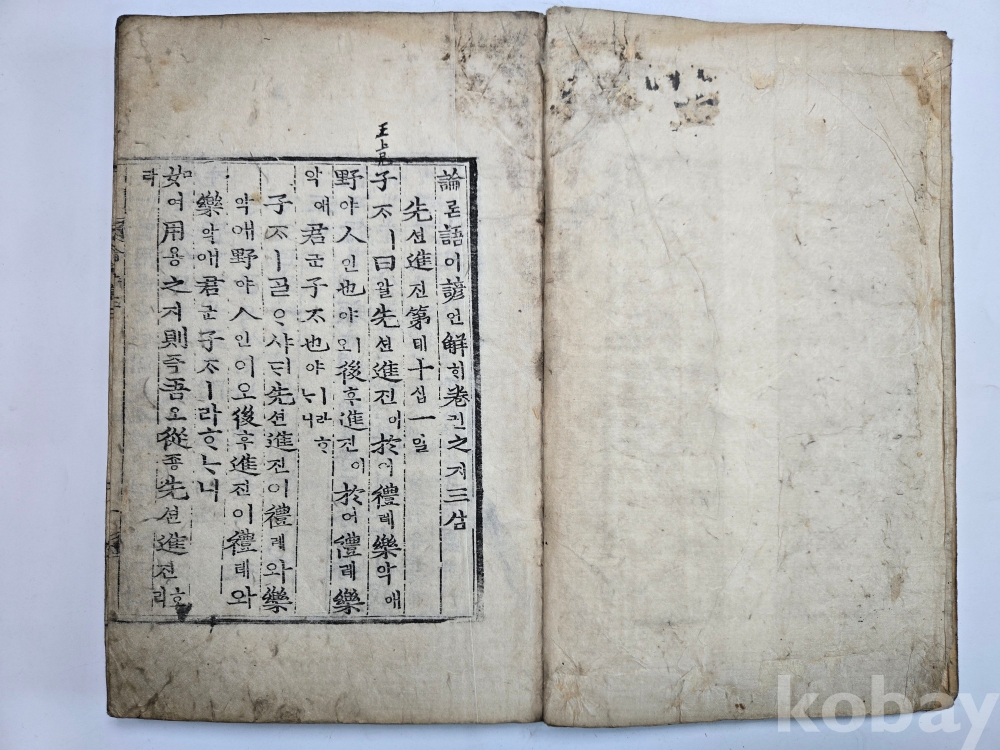 論론語어諺언解ᄒᆡ卷권之지三삼
先션進진第뎨十십一일
子ᄌᆞㅣ曰왈先션進진이於어禮례樂악애
野야人인也야ㅣ오後후進진이於어禮례樂
악애君군子ᄌᆞ也야ㅣ라ᄒᆞᄂᆞ니
子ᄌᆞㅣᄀᆞᆯᄋᆞ샤ᄃᆡ先션進진이禮례와樂
악애野야人인이오後후進진이禮례와
樂악애君군子ᄌᆞㅣ라ᄒᆞᄂᆞ니
如여用용之지則즉吾오從죵先션進진호리
라
kobay